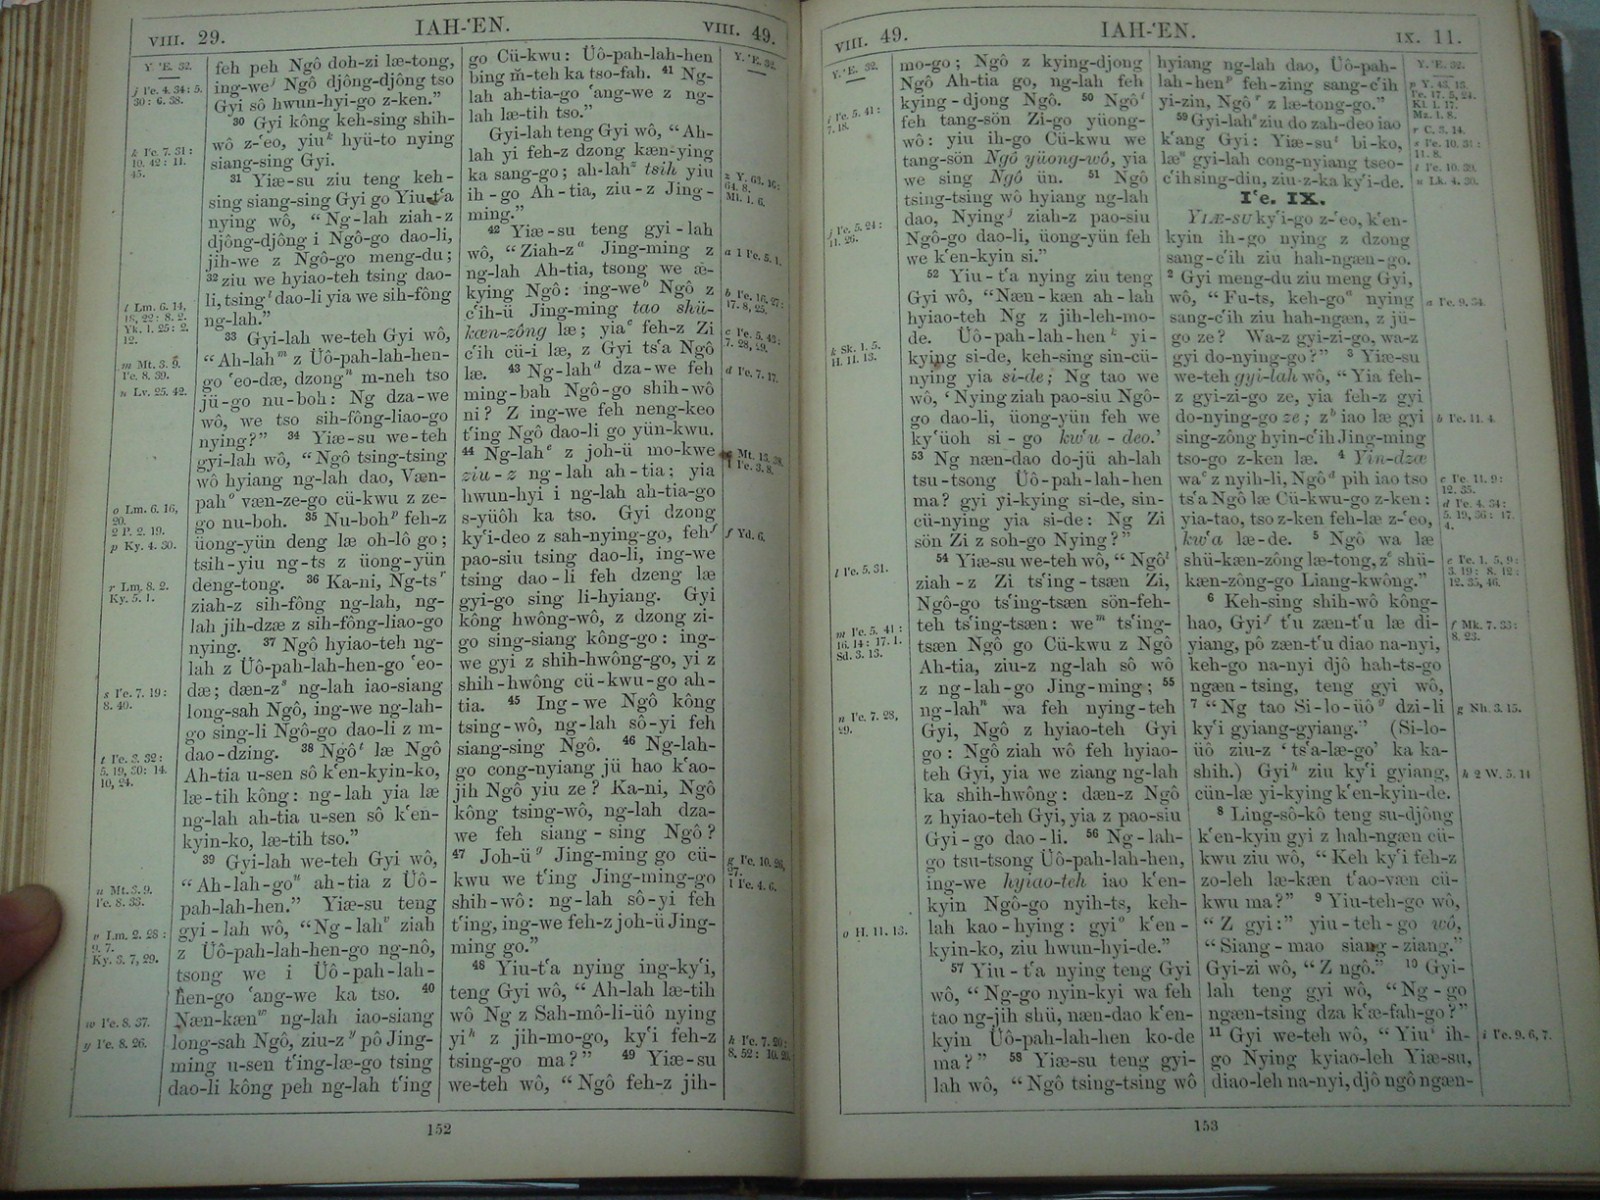 VIII. 29.
IAH-‘EN.
VIII. 49.
Y. ‘E. 32.
j I‘e. 4. 34: 5.
30: 6. 38.
k I‘e. 7. 31:
10. 42: 11.
45.
l Lm. 6. 14,
18, 22: 8. 2.
Yk. 1. 25: 2.
12.
m Mt. 3. 9.
I‘e. 8. 39.
n Lv. 25. 42.
o Lm. 6. 16,
20.
2 P. 2. 19.
p Ky. 4. 30.
r Lm. 8. 2.
Ky. 5. 1.
s I‘e. 7. 19:
8. 40.
t I‘e. 3. 32:
5. 19, 30: 14.
10, 24.
u Mt. 3. 9.
I‘e. 8. 33.
v Lm. 2. 28:
9. 7.
Ky. 3. 7, 29.
w I‘e. 8. 37.
y I‘e. 8. 26.
feh peh Ngô doh-zi læ-tong,
ing-we j Ngô djông-djông tso
Gyi sô hwun-hyi-go z-ken.”
30 Gyi kông keh-sing shih-
wô z-‘eo, yiu k hyü-to nying
siang-sing Gyi.
31 Yiæ-su ziu teng keh-
sing siang-sing Gyi go Yiu-t‘a
nying wô, “Ng-lah ziah-z
djông-djông i Ngô-go dao-li,
jih-we z Ngô-go meng-du;
32 ziu we hyiao-teh tsing dao-
li, tsing l dao-li yia we sih-fông
ng-lah.”
33 Gyi-lah we-teh Gyi wô,
“Ah-lah m z Üô-pah-lah-hen-
go ‘eo-dæ, dzong n m-neh tso
jü-go nu-boh: Ng dza-we
wô, we tso sih-fông-liao-go
nying?” 34 Yiæ-su we-teh
gyi-lah wô, “Ngô tsing-tsing
wô hyiang ng-lah dao, Væn-
pah o væn-ze-go cü-kwu z ze-
go nu-boh. 35 Nu-boh p feh-z
üong-yün deng læ oh-lô go;
tsih-yiu ng-ts z üong-yün
deng-tong. 36 Ka-ni, Ng-ts r
ziah-z sih-fông ng-lah, ng-
lah jih-dzæ z sih-fông-liao-go
nying. 37 Ngô hyiao-teh ng-
lah z Üô-pah-lah-hen-go ‘eo-
dæ; dæn-z s ng-lah iao-siang
long-sah Ngô, ing-we ng-lah-
go sing-li Ngô-go dao-li z m-
dao-dzing. 38 Ngô t læ Ngô
Ah-tia u-sen sô k‘en-kyin-ko,
læ-tih kông: ng-lah yia læ
ng-lah ah-tia u-sen sô k‘en-
kyin-ko, læ-tih tso.”
39 Gyi-lah we-teh Gyi wô,
“Ah-lah-go u ah-tia z Üô-
pah-lah-hen.” Yiæ-su teng
gyi-lah wô, “Ng-lah v ziah
z Üô-pah-lah-hen-go ng-nô,
tsong we i Üô-pah-lah-
hen-go ‘ang-we ka tso. 40
Næn-kæn w ng-lah iao-siang
long-sah Ngô, ziu-z y pô Jing-
ming u-sen t‘ing-læ-go tsing
dao-li kông peh ng-lah t‘ing
go Cü-kwu: Üô-pah-lah-hen
bing m̄-teh ka tso-fah. 41 Ng-
lah ah-tia-go ‘ang-we z ng-
lah læ-tih tso.”
Gyi-lah teng Gyi wô, “Ah-
lah yi feh-z dzong kæn-ying
ka sang-go; ah-lah z tsih yiu
ih-go Ah-tia, ziu-z Jing-
ming.”
42 Yiæ-su teng gyi-lah
wô, “Ziah-z a Jing-ming z
ng-lah Ah-tia, tsong we æ-
kying Ngô: ing-we b Ngô z
c‘ih-ü Jing-ming tao shü-
kæn-zông læ; yia c feh-z Zi
c‘ih cü-i læ, z Gyi ts‘a Ngô
læ. 43 Ng-lah d dza-we feh
ming-bah Ngô-go shih-wô
ni? Z ing-we feh neng-keo
t‘ing Ngô dao-li go yün-kwu.
44 Ng-lah e z joh-ü mo-kwe
ziu-z ng-lah ah-tia; yia
hwun-hyi i ng-lah ah-tia-go
s-yüôh ka tso. Gyi dzong
ky‘i-deo z sah-nying-go, feh f
pao-siu tsing dao-li, ing-we
tsing dao-li feh dzeng læ
gyi-go sing li-hyiang. Gyi
kông hwông-wô, z dzong zi-
go sing-siang kông-go: ing-
we gyi z shih-hwông-go, yi z
shih-hwông cü-kwu-go ah-
tia. 45 Ing-we Ngô kông
tsing-wô, ng-lah sô-yi feh
siang-sing Ngô. 46 Ng-lah-
go cong-nyiang jü hao k‘ao-
jih Ngô yiu ze? Ka-ni, Ngô
kông tsing-wô, ng-lah dza-
we feh siang-sing Ngô?
47 Joh-ü g Jing-ming go cü-
kwu we t‘ing Jing-ming-go
shih-wô: ng-lah sô-yi feh
t‘ing, ing-we feh-z joh-ü Jing-
ming go.”
48 Yiu-t‘a nying ing-ky‘i,
teng Gyi wô, “Ah-lah læ-tih
wô Ng z Sah-mô-li-üô nying
yi h z jih-mo-go, ky‘i feh-z
tsing-go ma?” 49 Yiæ-su
we-teh wô, “Ngô feh-z jih-
Y. ‘E. 32.
z Y. 63. 16:
64. 8.
Ml. 1. 6.
a 1 I‘e. 5. 1.
b I‘e. 16. 27:
17. 8, 25.
c I‘e. 5. 43:
7. 28, 29.
d I‘e. 7. 17.
e Mt. 13. 38.
1 I‘e. 3. 8.
f Yd. 6.
g I‘e. 10. 26,
27.
1 I‘e. 4. 6.
h I‘e. 7. 20:
8. 52: 10. 20.
152
VIII. 49.
IAH-‘EN.
IX. 11.
Y. ‘E. 32.
i I‘e. 5. 41:
7. 18.
j I‘e. 5. 24:
11. 26.
k Sk. 1. 5.
H. 11. 13.
l I‘e. 5. 31.
m I‘e. 5. 41:
16. 14: 17. 1.
Sd. 3. 13.
n I‘e. 7. 28,
29.
o H. 11. 13.
mo-go; Ngô z kying-djong
Ngô Ah-tia go, ng-lah feh
kying-djong Ngô. 50 Ngô i
feh tang-sön Zi-go yüong-
wô: yiu ih-go Cü-kwu we
tang-sön Ngô yüong-wô, yia
we sing Ngô ün. 51 Ngô
tsing-tsing wô hyiang ng-lah
dao, Nying j ziah-z pao-siu
Ngô-go dao-li, üong-yün feh
we k‘en-kyin si.”
52 Yiu-t‘a nying ziu teng
Gyi wô, “Næn-kæn ah-lah
hyiao-teh Ng z jih-leh-mo-
de. Üô-pah-lah-hen k yi-
kying si-de, keh-sing sin-cü-
nying yia si-de; Ng tao we
wô, ‘Nying ziah pao-siu Ngô-
go dao-li, üong-yün feh we
ky‘üoh si-go kw‘u-deo.’
53 Ng næn-dao do-jü ah-lah
tsu-tsong Üô-pah-lah-hen
ma? gyi yi-kying si-de, sin-
cü-nying yia si-de: Ng Zi
sön Zi z soh-go Nying?”
54 Yiæ-su we-teh wô, “Ngô l
ziah-z Zi ts‘ing-tsæn Zi,
Ngô-go ts‘ing-tsæn sön-feh-
teh ts‘ing-tsæn: we m ts‘ing-
tsæn Ngô go Cü-kwu z Ngô
Ah-tia, ziu-z ng-lah sô wô
z ng-lah-go Jing-ming; 55
ng-lah n wa feh nying-teh
Gyi, Ngô z hyiao-teh Gyi
go: Ngô ziah wô feh hyiao-
teh Gyi, yia we ziang ng-lah
ka shih-hwông: dæn-z Ngô
z hyiao-teh Gyi, yia z pao-siu
Gyi-go dao-li. 56 Ng-lah-
go tsu-tsong Üô-pah-lah-hen,
ing-we hyiao-teh iao k‘en-
kyin Ngô-go nyih-ts, keh-
lah kao-hying: gyi o k‘en-
kyin-ko, ziu hwun-hyi-de.”
57 Yiu-t‘a nying teng Gyi
wô, “Ng-go nyin-kyi wa feh
tao ng-jih shü, næn-dao k‘en-
kyin Üô-pah-lah-hen ko-de
ma?” 58 Yiæ-su teng gyi-
lah wô, “Ngô tsing-tsing wô
hyiang ng-lah dao, Üô-pah-
lah-hen p feh-zing sang-c‘ih
yi-zin, Ngô r z læ-tong-go.”
59 Gyi-lah s ziu do zah-deo iao
k‘ang Gyi: Yiæ-su t bi-ko,
læ u gyi-lah cong-nyiang tseo-
c‘ih sing-din, ziu-z-ka ky‘i-de.
I‘e. IX.
YIÆ-SU ky‘i-go z-‘eo, k‘en-
kyin ih-go nying z dzong
sang-c‘ih ziu hah-ngæn-go.
2 Gyi meng-du ziu meng Gyi,
wô, “Fu-ts, keh-go a nying
sang-c‘ih ziu hah-ngæn, z jü-
go ze? Wa-z gyi-zi-go, wa-z
gyi do-nying-go?” 3 Yiæ-su
we-teh gyi-lah wô, “Yia feh-
z gyi-zi-go ze, yia feh-z gyi
do-nying-go ze; z b iao læ gyi
sing-zông hyin-c‘ih Jing-ming
tso-go z-ken læ. 4 Yin-dzæ
wa c z nyih-li, Ngô d pih iao tso
ts‘a Ngô læ Cü-kwu-go z-ken:
yia-tao, tso z-ken feh-læ z-‘eo,
kw‘a læ-de. 5 Ngô wa læ
shü-kæn-zông læ-tong, z e shü-
kæn-zông-go Liang-kwông.”
6 Keh-sing shih-wô kông-
hao, Gyi f t‘u zæn-t‘u læ di-
yiang, pô zæn-t‘u diao na-nyi,
keh-go na-nyi djô hah-ts-go
ngæn-tsing, teng gyi wô,
7 “Ng tao Si-lo-üô g dzi-li
ky‘i gyiang-gyiang.” (Si-lo-
üô ziu-z ‘ts‘a-læ-go’ ka ka-
shih.) Gyi h ziu ky‘i gyiang,
cün-læ yi-kying k‘en-kyin-de.
8 Ling-sô-kô teng su-djông
k‘en-kyin gyi z hah-ngæn cü-
kwu ziu wô, “Keh ky‘i feh-z
zo-leh læ-kæn t‘ao-væn cü-
kwu ma?” 9 Yiu-teh-go wô,
“Z gyi:” yiu-teh-go wô,
“Siang-mao siang-ziang.”
Gyi-zi wô, “Z ngô.” 10 Gyi-
lah teng gyi wô, “Ng-go
ngæn-tsing dza k‘æ-fah-go?”
11 Gyi we-teh wô, “Yiu i ih-
go Nying kyiao-leh Yiæ-su,
diao-leh na-nyi, djô ngô ngæn-
Y. ‘E. 32.
p Y. 43. 13.
I‘e. 17. 5, 24.
Kl. 1. 17.
Mz. 1. 8.
r C. 3. 14.
s I‘e. 10. 31:
11. 8.
t I‘e. 10. 39.
u Lk. 4. 30.
a I‘e. 9. 34.
b I‘e. 11. 4.
c I‘e. 11. 9:
12. 35.
d I‘e. 4. 34:
5. 19, 36: 17.
4.
e I‘e. 1. 5, 9:
3. 19: 8. 12:
12. 35, 46.
f Mk. 7. 33:
8. 23.
g Nh. 3. 15.
h 2 W. 5. 14
i I‘e. 9. 6, 7.
153